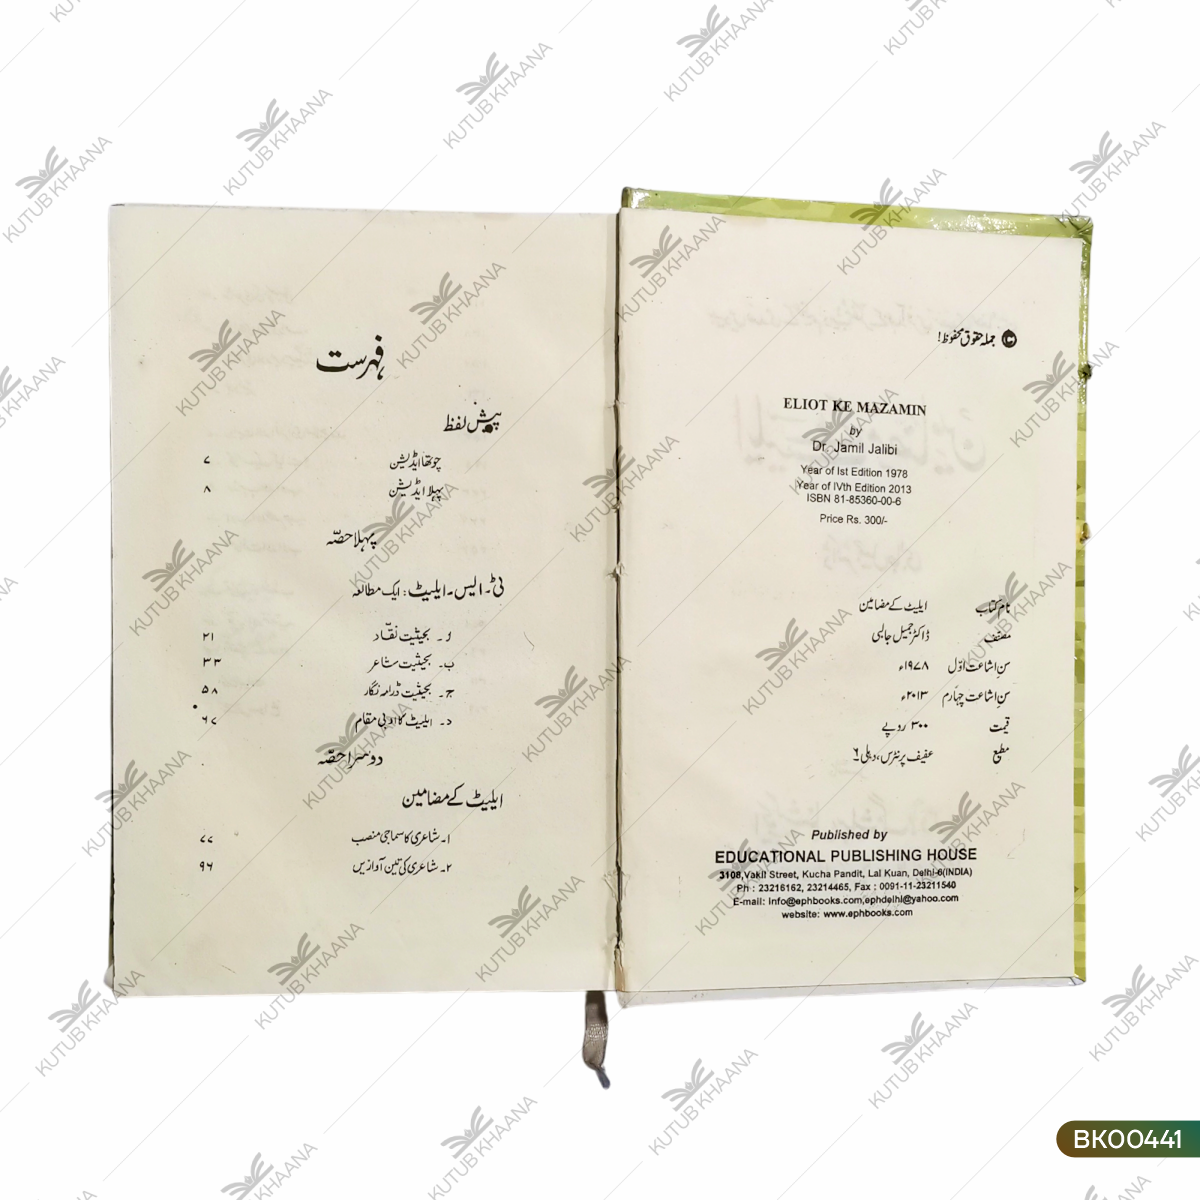 جملہ حقوق محفوظ!
ELIOT KE MAZAMIN
by
Dr. Jamil Jalibi
Year of Ist Edition 1978
Year of IVth Edition 2013
ISBN 81-85360-00-6
Price Rs. 300/-
نام کتاب ایلیٹ کے مضامین
مصنف ڈاکٹر جمیل جالبی
سن اشاعت اوّل ۱۹۷۸ء
سن اشاعت چہارم ۲۰۱۳ء
قیمت ۳۰۰ روپے
مطبع عفیف پرنٹرس، دہلی۔۶
Published by
EDUCATIONAL PUBLISHING HOUSE
3108,Vakil Street, Kucha Pandit, Lal Kuan, Delhi-6(INDIA)
Ph : 23216162, 23214465, Fax : 0091-11-23211540
E-mail: info@ephbooks.com,ephdelhi@yahoo.com
website: www.ephbooks.com
فہرست
پیش لفظ
چوتھا ایڈیشن ۷
پہلا ایڈیشن ۸
پہلا حصّہ
ٹی۔ ایس۔ ایلیٹ: ایک مطالعہ
ا۔ بحیثیت نقّاد ۲۱
ب۔ بحیثیت شاعر ۳۳
ج۔ بحیثیت ڈرامہ نگار ۵۸
د۔ ایلیٹ کا ادبی مقام ۶۷
دوسرا حصّہ
ایلیٹ کے مضامین
۱۔ شاعری کا سماجی منصب ۷۷
۲۔ شاعری کی تین آوازیں ۹۶
KUTUB KHAANA
BK00441